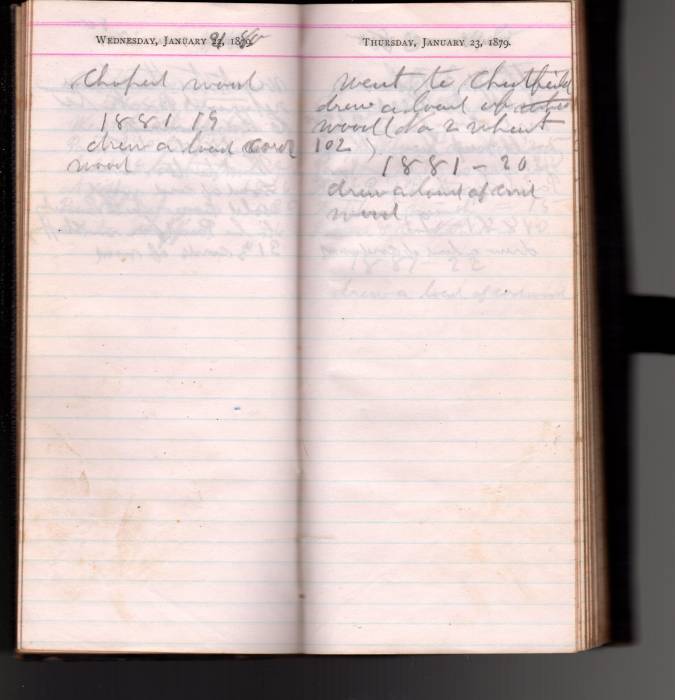 Wednesday, January 22, 1879.
Choped wood
1881 19
drew a load cord
wood
Thursday, January 23, 1879.
went to Chestfield
drew a load of
wood (No 2 wheat
102 )
1881 - 20
drew a load of cord
wood